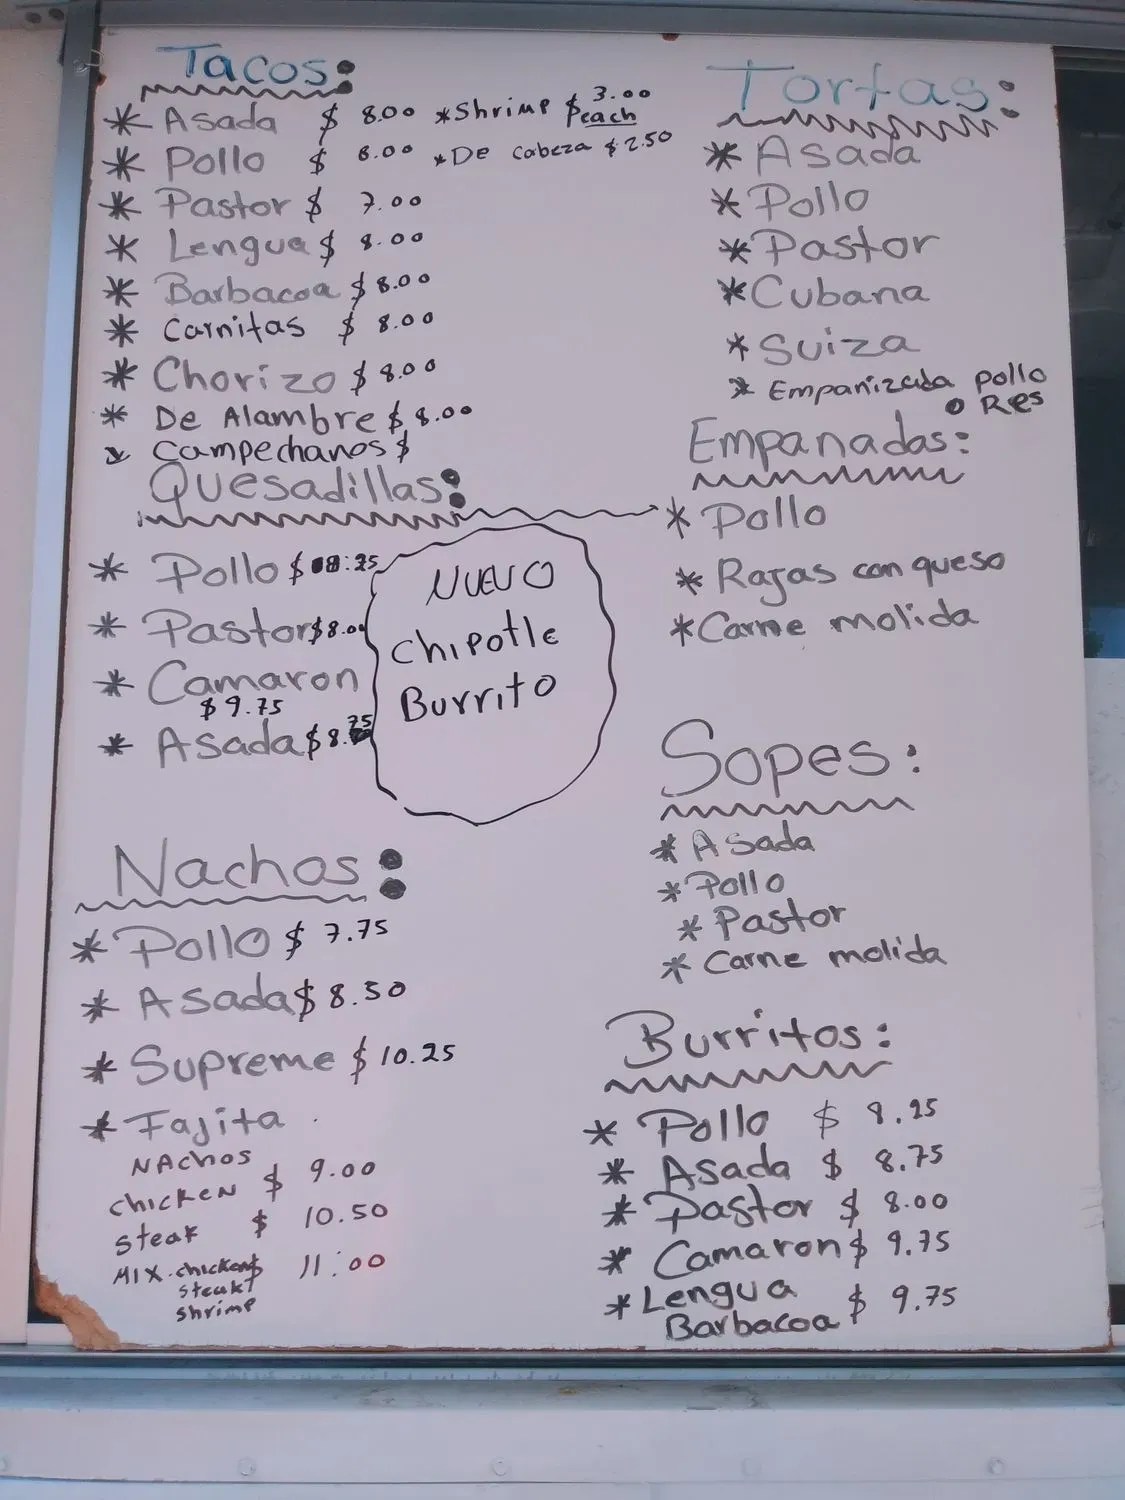 Tacos:
* Asada $ 8.00 * Shrimp $ 3.00 each
* Pollo $ 8.00 * De cabeza $ 2.50
* Pastor $ 7.00
* Lengua $ 8.00
* Barbacoa $ 8.00
* Carnitas $ 8.00
* Chorizo $ 8.00
* De Alambre $ 8.00
* Campechanos $
Quesadillas:
* Pollo $ 8.25
* Pastor $8.00
* Camaron
$ 9.75
* Asada $8.75
NUEVO
Chipotle
Burrito
Nachos:
* Pollo $ 7.75
* Asada $ 8.50
* Supreme $ 10.25
* Fajita
NAchos
chicken $ 9.00
steak $ 10.50
MIX. chicken $ 11.00
steak
shrimp
Tortas:
* Asada
* Pollo
* Pastor
* Cubana
* Suiza
* Empanizada pollo
o Res
Empanadas:
* Pollo
* Rajas con queso
* Carne molida
Sopes:
* Asada
* Pollo
* Pastor
* Carne molida
Burritos:
* Pollo $ 8.25
* Asada $ 8.75
* Pastor $ 8.00
* Camaron $ 9.75
* Lengua
Barbacoa $ 9.75